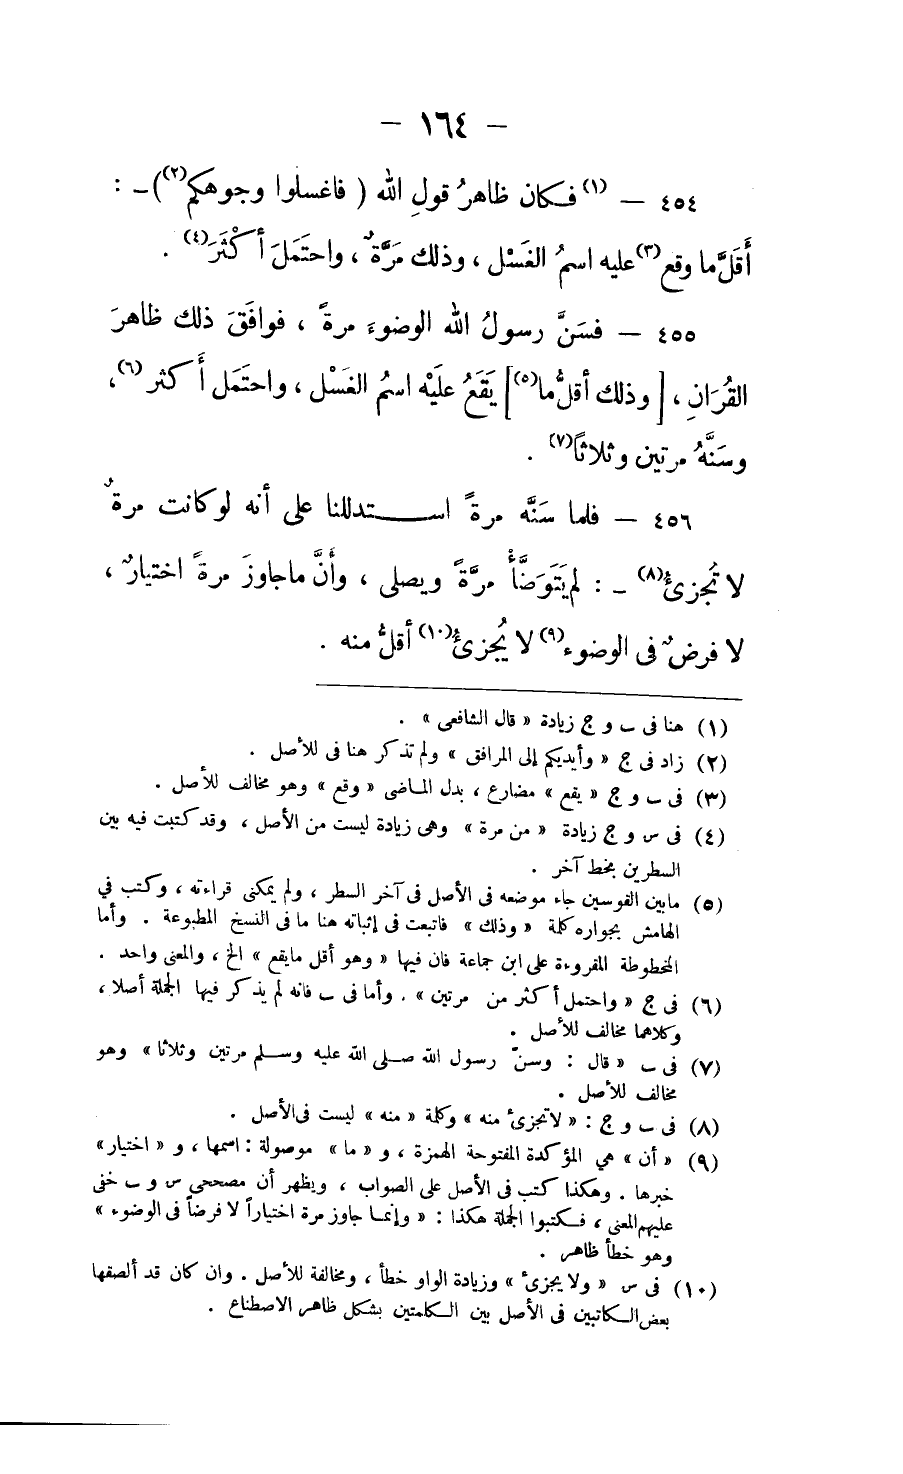 — ١٦٤ —
٤٥٤ — (١) فكان ظاهرُ قولِ الله ( فاغسلوا وجوهكم (٢)) ـ :
أَقَلَّ ما وقع (٣) عليه اسمُ الغَسْل ، وذلك مَرَّةٌ ، واحتَمَلَ أَكْثَرَ (٤) .
٤٥٥ — فسَنَّ رسولُ الله الوضوءَ مرةً ، فوافَقَ ذلك ظاهرَ
القُرَانِ ، [ وذلك أقلُّ ما (٥) ] يَقَعُ علَيْه اسمُ الغَسْل ، واحتَمَل أَكثر (٦) ،
وسَنَّهُ مرتين وثلاثاً (٧) .
٤٥٦ — فلما سَنَّه مرةً استدللنا على أنه لو كانت مرةٌ
لا تُجزئُ (٨) ـ : لم يَتَوَضَّأْ مرَّةً ويصلى ، وأَنَّ ما جاوزَ مرةً اختيارٌ ،
لا فرضٌ فى الوضوء (٩) لا يُجزئُ (١٠) أقلُّ منه .
(١) هنا فى ب و ج زيادة « قال الشافعى » .
(٢) زاد فى ج « وأيديكم إلى المرافق » ولم تذكر هنا فى للأصل .
(٣) فى ب و ج « يقع » مضارع ، بدل الماضى « وقع » وهو مخالف للأصل .
(٤) فى س و ج زيادة « من مرة » وهى زيادة ليست من الأصل ، وقد كتبت فيه بين
السطرين بخط آخر .
(٥) مابين القوسين جاء موضعه فى الأصل فى آخر السطر ، ولم يمكنى قراءته ، وكتب في
الهامش بجواره كلمة « وذلك » فاتبعت فى إثباته هنا ما فى النسخ المطبوعة . وأما
المخطوطة المقروءة على ابن جماعة فان فيها « وهو أقل مايقع » الخ ، والمعنى واحد .
(٦) فى ج « واحتمل أكثر من مرتين » . وأما فى ب فانه لم يذكر فيها الجملة أصلا ،
وكلاهما مخالف للأصل .
(٧) فى ب « قال : وسنّ رسول الله صلى الله عليه وسلم مرتين وثلاثا » وهو
مخالف للأصل .
(٨) فى ب و ج : « لاتجزئ منه » وكلمة « منه » ليست فى الأصل .
(٩) « أن » هي المؤكدة المفتوحة الهمزة ، و « ما » موصولة : اسمها ، و « اختيار »
خبرها . وهكذا كتب فى الأصل على الصواب ، ويظهر أن مصححى س و ب خفى
عليهم المعنى ، فكتبوا الجملة هكذا : « وإنما جاوز مرة اختياراً لا فرضاً فى الوضوء »
وهو خطأ ظاهر .
(١٠) فى س « ولا يجزئ » وزيادة الواو خطأ ، ومخالفة للأصل . وان كان قد ألصقها
بعض الكاتبين فى الأصل بين الكلمتين بشكل ظاهر الاصطناع .